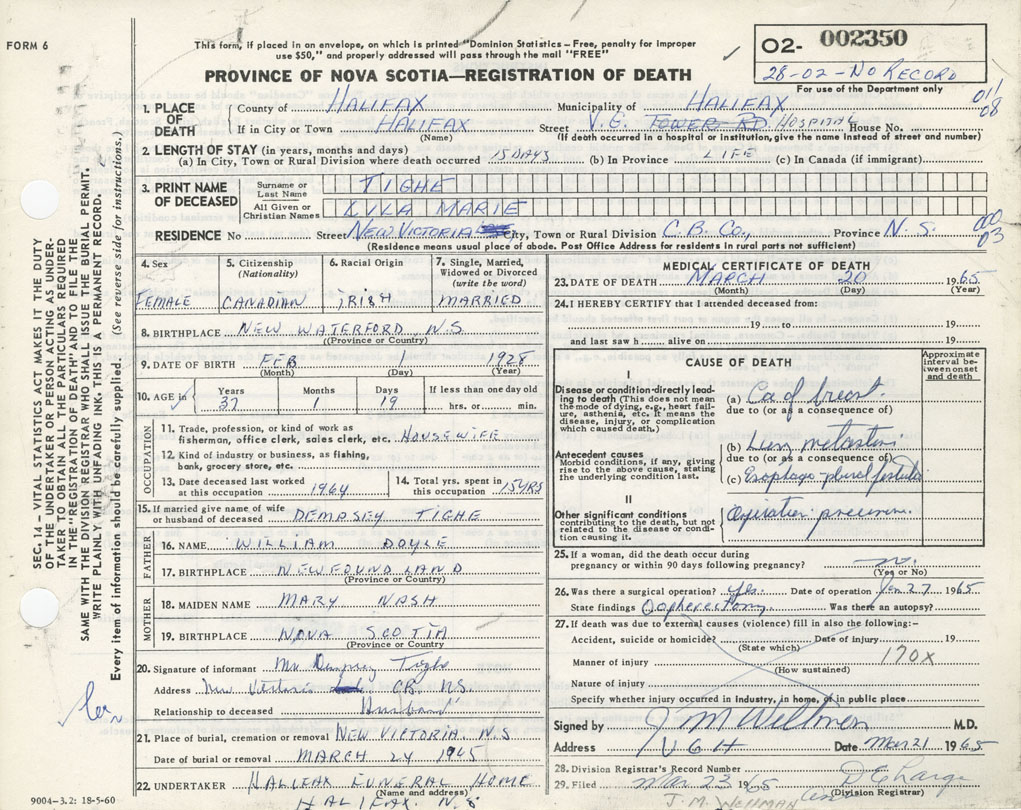 FORM 6
This form, if placed in an envelope, on which is printed "Dominion Statistics – Free, penalty for improper
use $50," and properly addressed will pass through the mail "FREE"
PROVINCE OF NOVA SCOTIA—REGISTRATION OF DEATH
O2- 002350
28-02-NO RECORD
For use of the Department only
011
08
1. PLACE OF DEATH
County of HALIFAX Municipality of HALIFAX
If in City or Town HALIFAX Street V.G. TOWER RD HOSPITAL House No.
(Name) (If death occurred in hospital or institution, give the name instead of street and number)
2. LENGTH OF STAY (in years, months and days)
(a) In City, Town or Rural Division where death occurred 15 DAYS (b) In Province LIFE (c) In Canada (if immigrant)
3. PRINT NAME OF DECEASED
Surname or Last Name TIGHE
All Given or Christian Names MARIE
RESIDENCE No Street NEW VICTORIA City, Town or Rural Division C.B. CO., Province N.S.
03
(Residence means usual place of abode. Post Office Address for residents in rural parts not sufficient)
4. Sex FEMALE
5. Citizenship (Nationality) CANADIAN
6. Racial Origin IRISH
7. Single, Married, Widowed or Divorced (write the word) MARRIED
8. BIRTHPLACE NEW WATERFORD N.S
((Province or Country)
9. DATE OF BIRTH FEB 1 1928
(Month) (Day) (Year)
10. AGE in Years 37 Months 1 Days 19 If less than one day old hrs. or min.
OCCUPATION
11. Trade, profession, or kind of work as
fisherman, office clerk, sales clerk, etc. HOUSEWIFE
12. Kind of industry or business, as fishing,
bank, grocery store, etc.
13. Date deceased last worked at this occupation 1964
14. Total yrs. spent in this occupation 15 YRS
15. If married give name of wife or husband of deceased DEMPSEY TIGHE
FATHER
16. NAME WILLIAM DOYLE
17. BIRTHPLACE NEWFOUNDLAND
(Province or Country)
MOTHER
18. MAIDEN NAME MARY NASH
19. BIRTHPLACE NOVA SCOTIA
(Province or Country)
20. Signature of informant Mr Dempsey Tighe
Address New Victoria CB. NS.
Relationship to deceased Husband
21. Place of burial, cremation or removal NEW VICTORIA N.S
Date of burial or removal MARCH 24 1965
22. UNDERTAKER HALIFAX FUNERAL HOME
(Name and address)
HALIFAX. N.S
MEDICAL CERTIFICATE OF DEATH
23. DATE OF DEATH MARCH 20 1965
(Month) (Day) (Year)
24. I HEREBY CERTIFY that I attended deceased from:
19 to 19
and last saw h alive on 19
CAUSE OF DEATH
Approximate interval between onset and death
I
Disease or condition directly leading to death (This does not mean the mode of dying, e.g., heart failure, asthenia, etc. It means the disease, injury, or complication which caused death.)
(a) Ca of breast.
due to (or as a consequence of)
Antecedent causes
Morbid conditions, if any, giving rise to the above cause, stating the underlying condition last.
(b)
due to (or as a consequence of)
(c) Esophago-pleural fistula
II
Other significant conditions
contributing to the death, but not related to the disease or condition causing it.
Aspiration pneumonia.
25. If a woman, did the death occur during
pregnancy or within 90 days following pregnancy? no.
(Yes or No)
26. Was there a surgical operation? Yes. Date of operation Jan 27 1965
State findings Oopherectomy Was there an autopsy?
27. If death was due to external causes (violence) fill in also the following:-
Accident, suicide or homicide? Date of injury 19
(State which)
Manner of injury 170X
(How sustained)
Nature of injury
Specify whether injury occurred in industry, in home, or in public place
Signed by J M Wellman M.D.
Address V G H Date Mar 21 1965
28. Division Registrar's Record Number
29. Filed Mar 23 1965
(Division Registrar)
J. M. WELLMAN
SEC. 14 – VITAL STATISTICS ACT MAKES IT THE DUTY
OF THE UNDERTAKER OR PERSON ACTING AS UNDER-
TAKER TO OBTAIN ALL THE PARTICULARS REQUIRED
IN THE "REGISTRATION OF DEATH" AND TO FILE THE
SAME WITH THE DIVISION REGISTRAR WHO SHALL ISSUE THE BURIAL PERMIT.
WRITE PLAINLY WITH UNFADING INK. THIS IS A PERMANENT RECORD.
Every item of information should be carefully supplied. (See reverse side for instructions.)
9004-3.2: 18-5-60